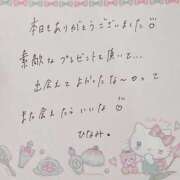 本日もありがとうございました♡
素敵なプレゼントを頂いて...
出会えてよかったな〜♡って
また会えたらいいな♡
ひなみ。